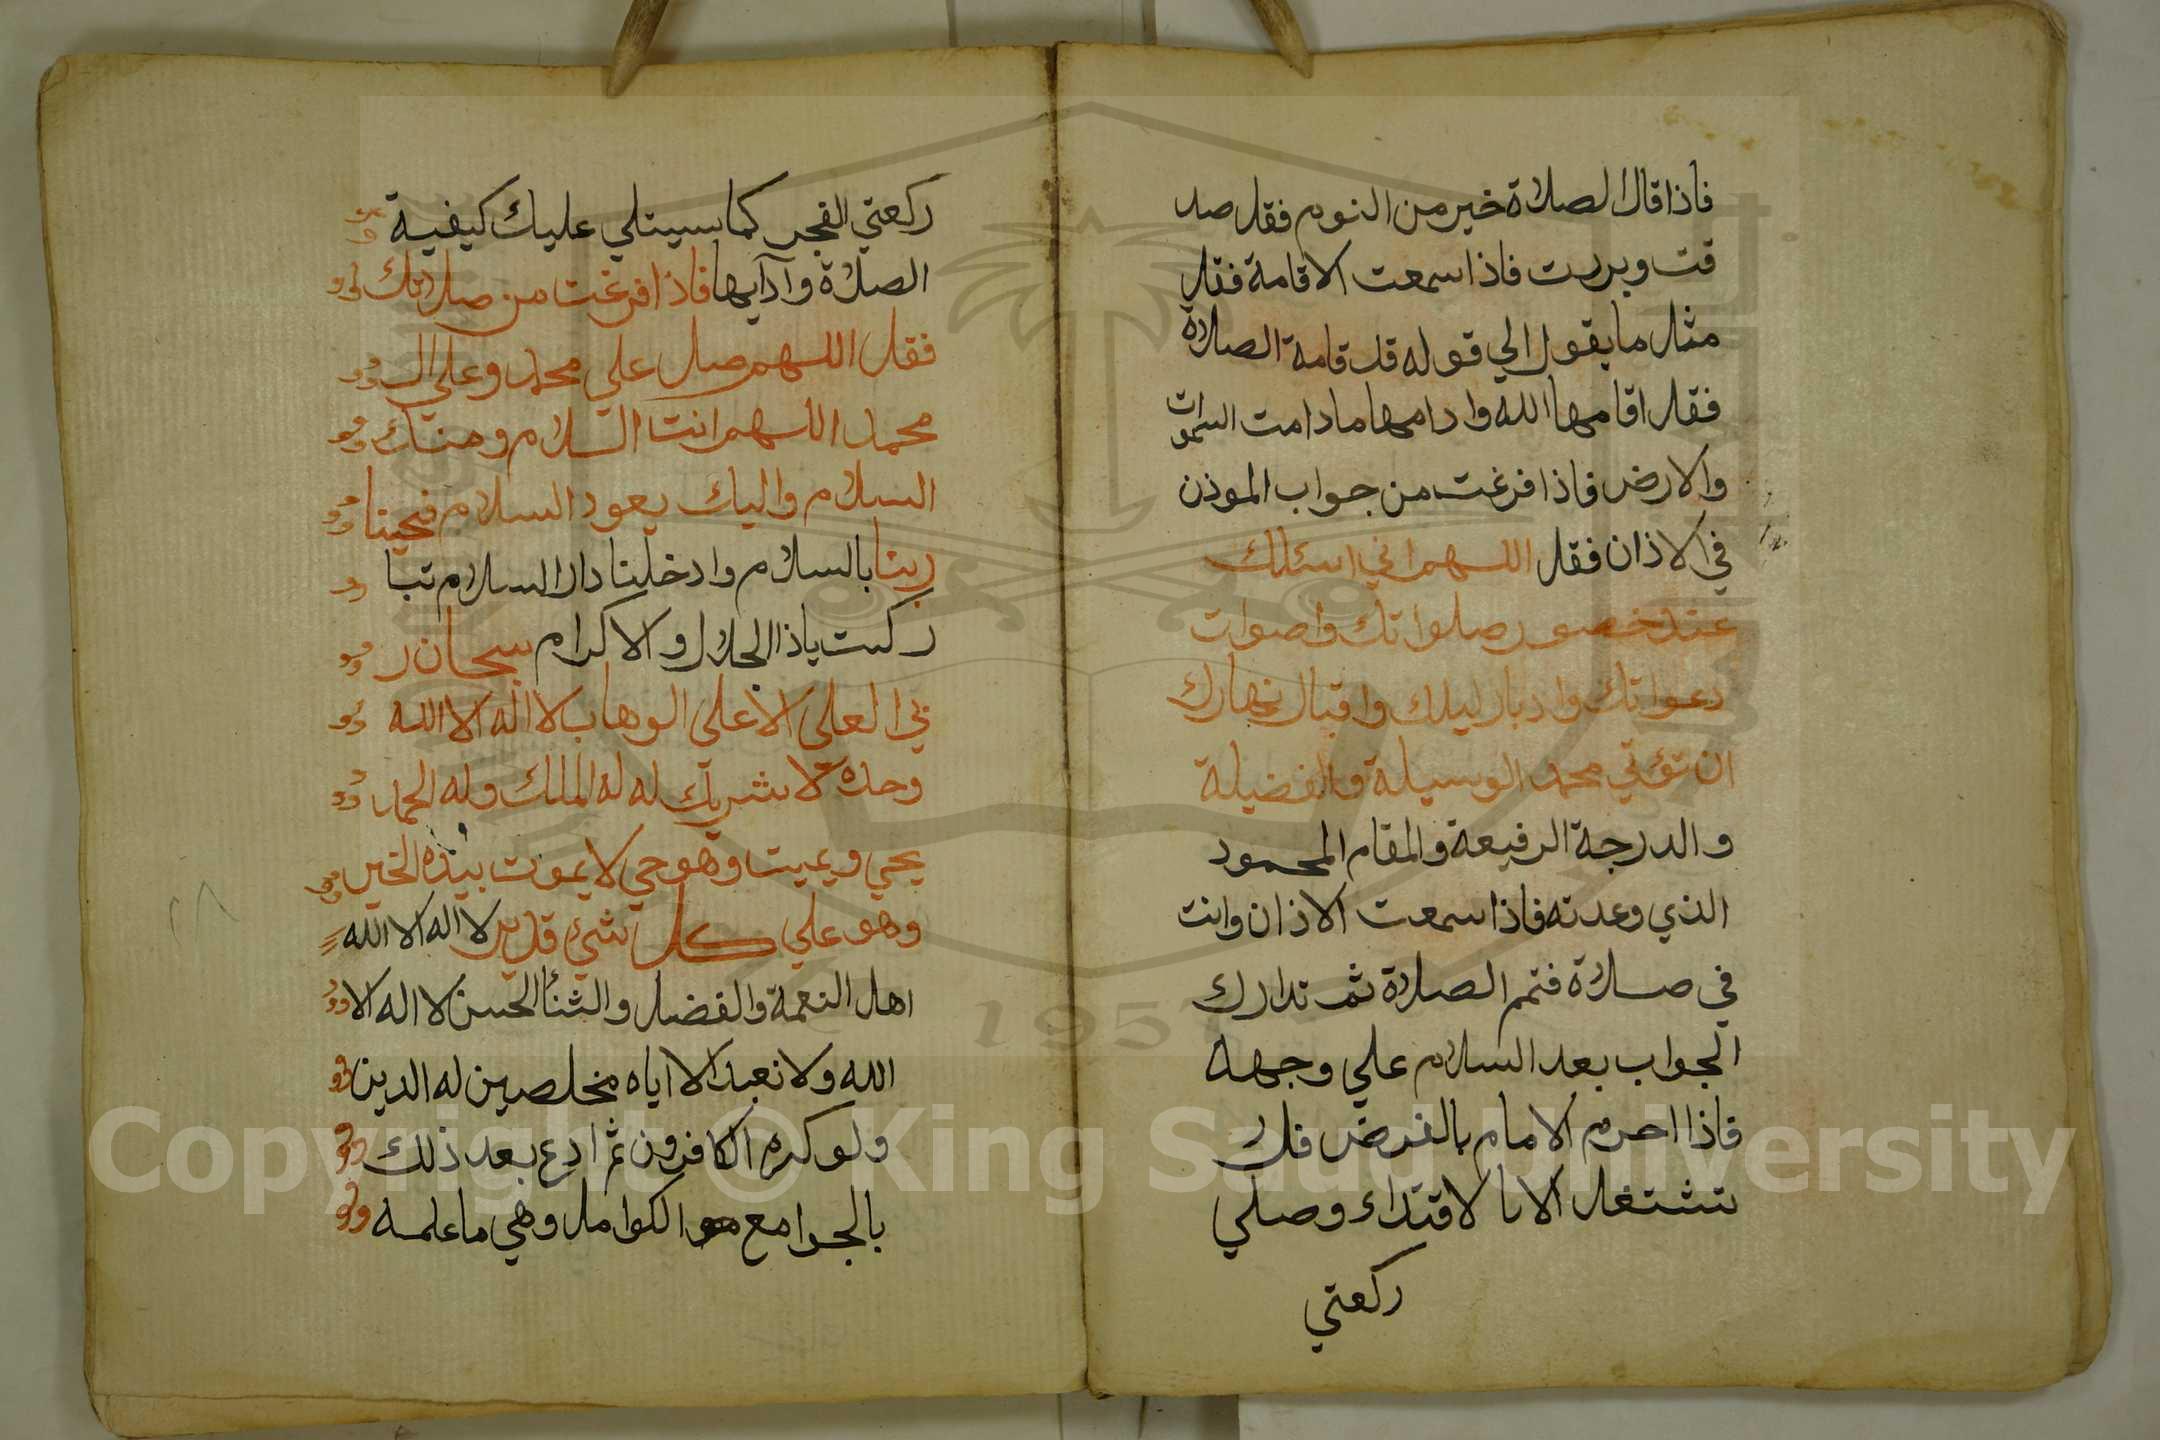 فاذا قال الصلاة خير من النوم فقل صد
قت وبررت فاذا سمعت الاقامة فقل
مثل ما يقول الي قوله قد قامة الصلاة
فقل اقامها الله وادامها ما دامت السموات
والارض فاذا فرغت من جواب الموذن
في الاذان فقل اللهم اني اسئلك
عند خصور صلواتك واصوات
دعواتك وادبار ليلك واقبال نهارك
ان تؤتي محمد الوسيلة والفضيلة
والدرجة الرفيعة والمقام المحمود
الذي وعدته فاذا سمعت الاذان وانت
في صلاة فتمم الصلاة ثم تدارك
الجواب بعد السلام علي وجهه
فاذا احرم الامام بالفرض فلا
تشتغل الا بالاقتداء وصلي
ركعتي
ركعتي الفجر كما سيتلي عليك كيفية
الصلاة وآدابها فاذا فرغت من صلاتك
فقل اللهم صل علي محمد وعلي ال
محمد اللهم انت السلام ومنك
السلام واليك يعود السلام فحينا
ربنا بالسلام وادخلنا دار السلام تبا
ركت ياذا الجلال والاكرام سبحان ر
بي العلي الاعلي الوهاب لا اله الا الله
وحده لا شريك له له الملك وله الحمد
يحي ويميت وهو حي لا يموت بيده الخير
وهو علي كل شيء قدير لا اله الا الله
اهل النعمة والفضل والثناء الحسن لا اله الا
الله ولا نعبد الا اياه مخلصين له الدين
ولو كره الكافرون ثم ادع بعد ذلك
بالجوامع الكوامل وهي ما علمه
Copyright © King Saud University
1957